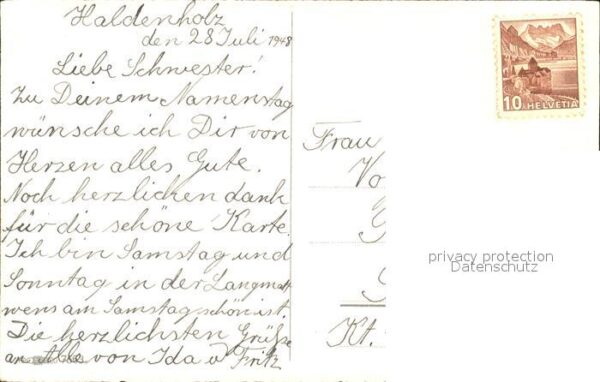 Haldenholz
den 28 Juli 1948
Liebe Schwester!
Zu Deinem Namenstag
wünsche ich Dir von
Herzen alles Gute.
Noch herzlichen dank
für die schöne Karte.
Ich bin Samstag und
Sonntag in der Langmatt
wens am Samstag schön ist.
Die herzlichsten Grüße
an Alle von Ida u Fritz
10 HELVETIA
Frau
Vo
Kt.
privacy protection
Datenschutz